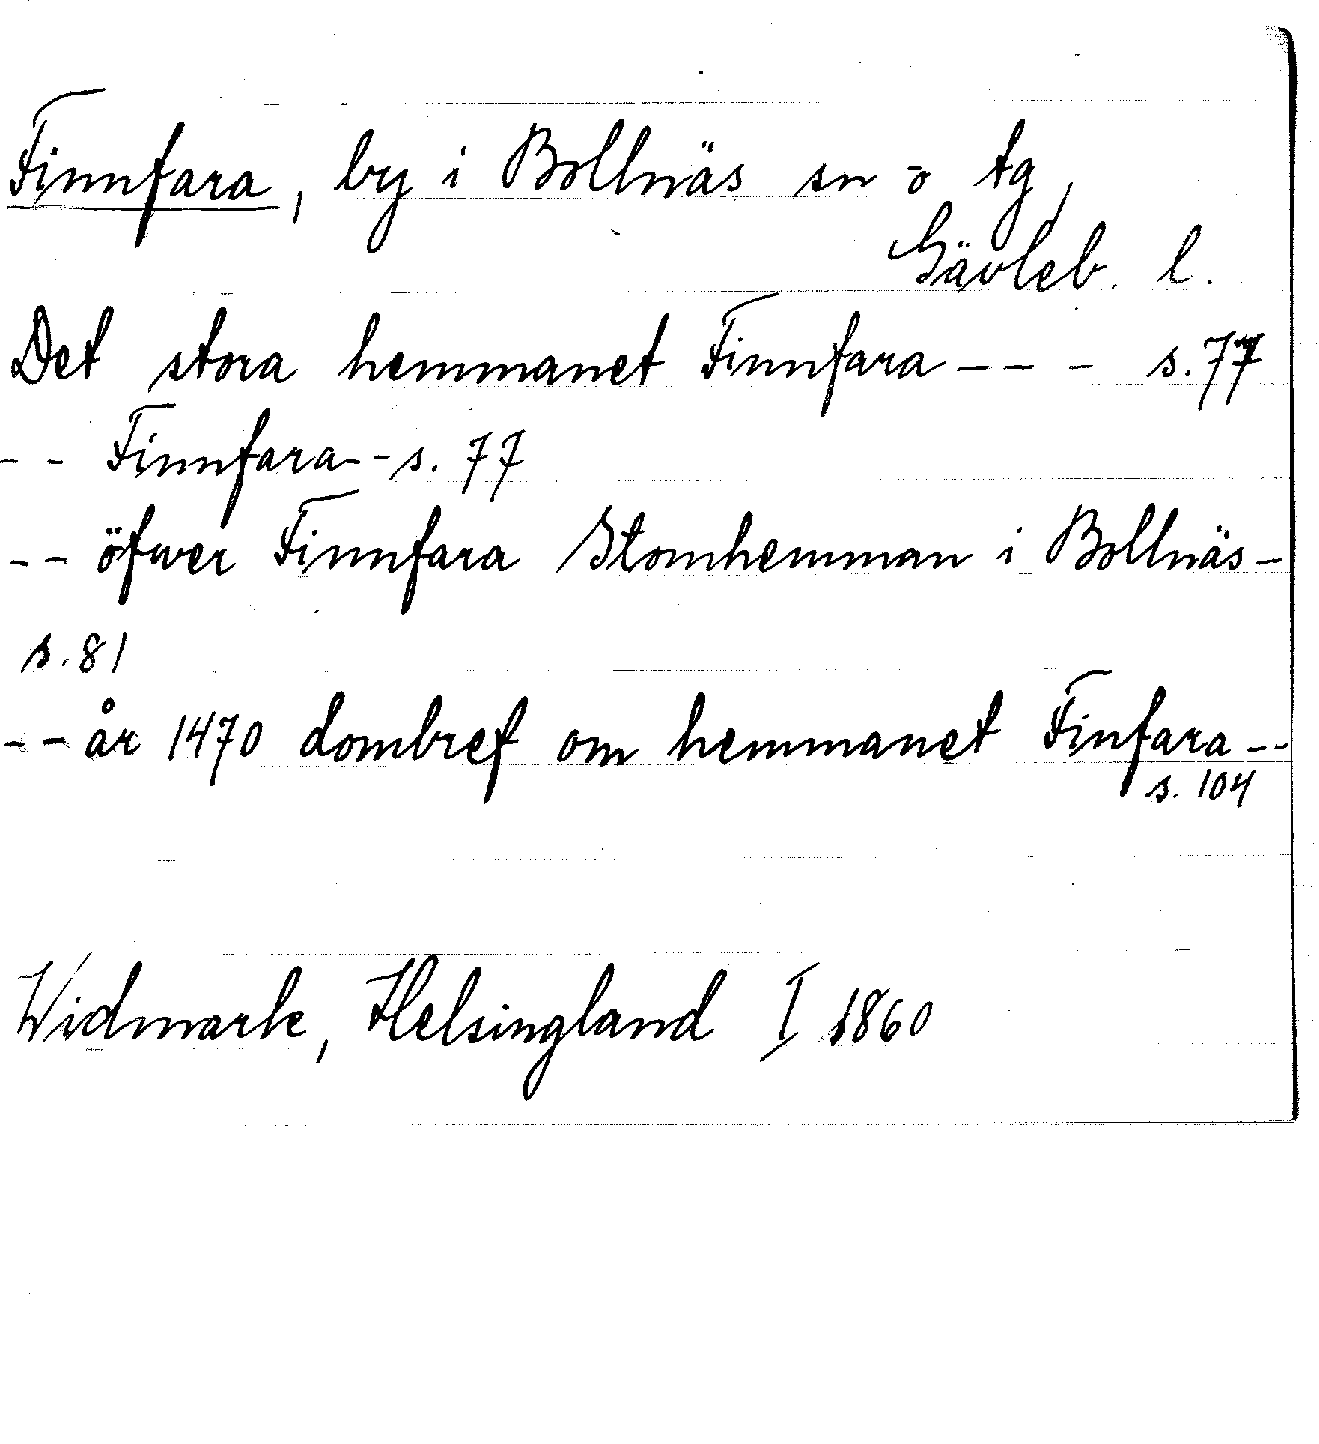 Finnfara, by i Bollnäs sn o tg,
Gävleb. l.
Det stora hemmanet Finnfara - - - s. 77
- - Finnfara - - s. 77
- - öfwer Finnfara Stomhemman i Bollnäs -
s. 81
- - år 1470 dombref om hemmanet Finfara - -
s. 104
Widmark, Helsingland I 1860